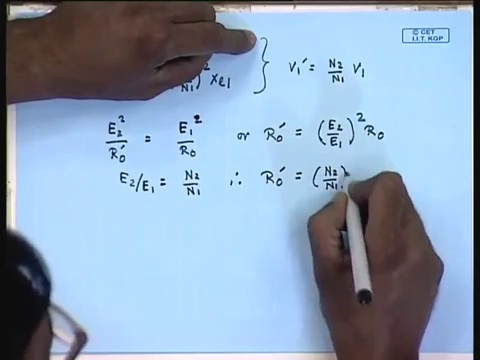 © CET
I.I.T. KGP
N1)² X e1 } V1′ = N2/N1 V1
E2²/R0′ = E1²/R0 or R0′ = (E2/E1)² R0
E2/E1 = N2/N1 ∴ R0′ = (N2/N1)